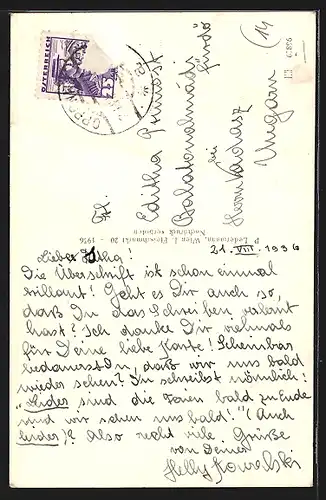 (14)
ÖSTERREICH
Frl.
Editha Primost
Balatonalmádi
fürdő
bei
Herrn Kardasz
Ungarn
P. Ledermann, Wien I. Fleischmarkt 20 - 1936
Nachdruck verboten
21. VIII. 1936
Liebe Editha!
Die Überschrift ist schon einmal
brillant! Geht es Dir auch so,
daß Du das Schreiben verlernt
hast? Ich danke Dir vielmals
für Deine liebe Karte! Scheinbar
bedauerst Du, daß wir uns bald
wieder sehen? Du schreibst nämlich:
"Leider sind die Ferien bald zu Ende
und wir sehen uns bald!" (Auch
leider)? Also recht viele Grüße
von Deiner
Helly Kowalski